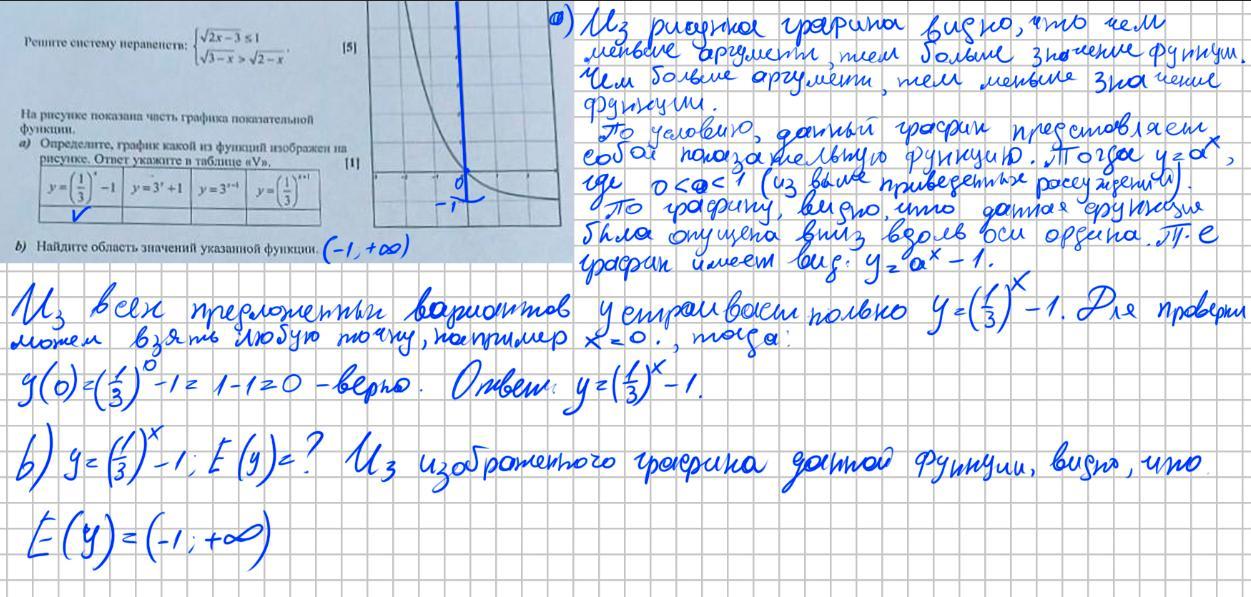 Решите систему неравенств: { √2x − 3 ≤ 1
√3 − x > √2 − x .
[5]
На рисунке показана часть графика показательной
функции.
a) Определите, график какой из функций изображен на
рисунке. Ответ укажите в таблице «V».
[1]
y = (1/3)^x − 1 y = 3^x + 1 y = 3^(x−1) y = (1/3)^(x+1)
V
b) Найдите область значений указанной функции. (-1; +∞)
0
-1
a) Из рисунка графика видно, что чем
меньше аргумент, тем больше значение функции.
Чем больше аргумент, тем меньше значение
функции.
По условию, данный график представляет
собой показательную функцию. Тогда y = a^x,
где 0 < a < 1 (из выше приведенных рассуждений).
По графику, видно, что данная функция
была опущена вниз вдоль оси ордина. Т.е
график имеет вид: y = a^x − 1.
Из всех предложенных вариантов устраивает только y = (1/3)^x − 1. Для проверки
можем взять любую точку, например x = 0., тогда:
y(0) = (1/3)^0 − 1 = 1 − 1 = 0 − верно. Ответ: y = (1/3)^x − 1.
b) y = (1/3)^x − 1; E(y) = ? Из изображенного графика данной функции, видно, что
E(y) = (-1; +∞)